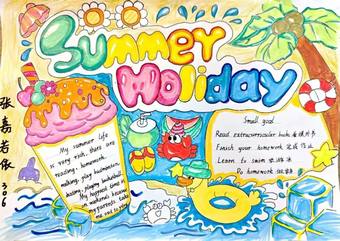 Summer
Holiday
张嘉若依
306
My summer life
is very rich, there are
reading, homework,
walking, play badminton,
playing basketball.
My happiest time is
on weekends because
my parents take
me out to play
Small goal
Read extracurricular books 看课外书
Finish your homework 完成作业
Learn to swim 学游泳
Do homework 做家务